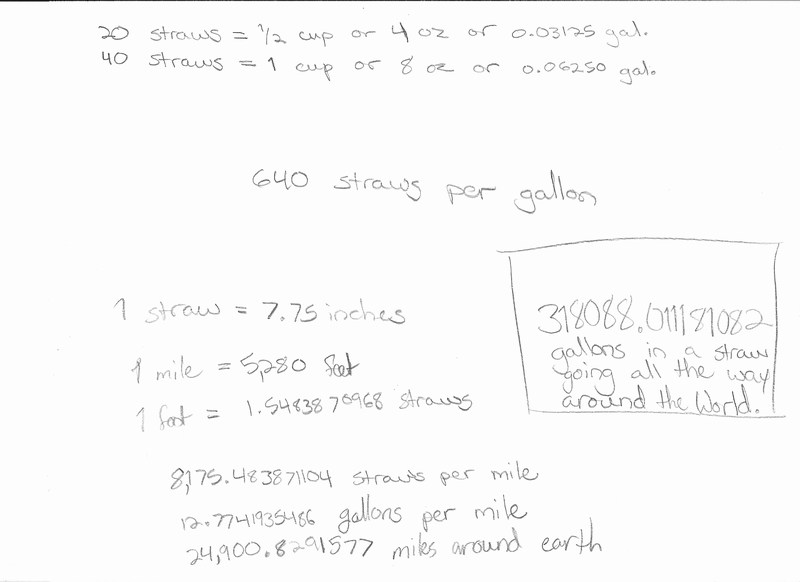 20 straws = 1/2 cup or 4 oz or 0.03125 gal.
40 straws = 1 cup or 8 oz or 0.06250 gal.
640 straws per gallon
1 straw = 7.75 inches
1 mile = 5,280 feet
1 foot = 1.5483870968 straws
318088.011181082
gallons in a straw
going all the way
around the World.
8,175.483871104 straws per mile
12.7741935486 gallons per mile
24,900.8291577 miles around earth